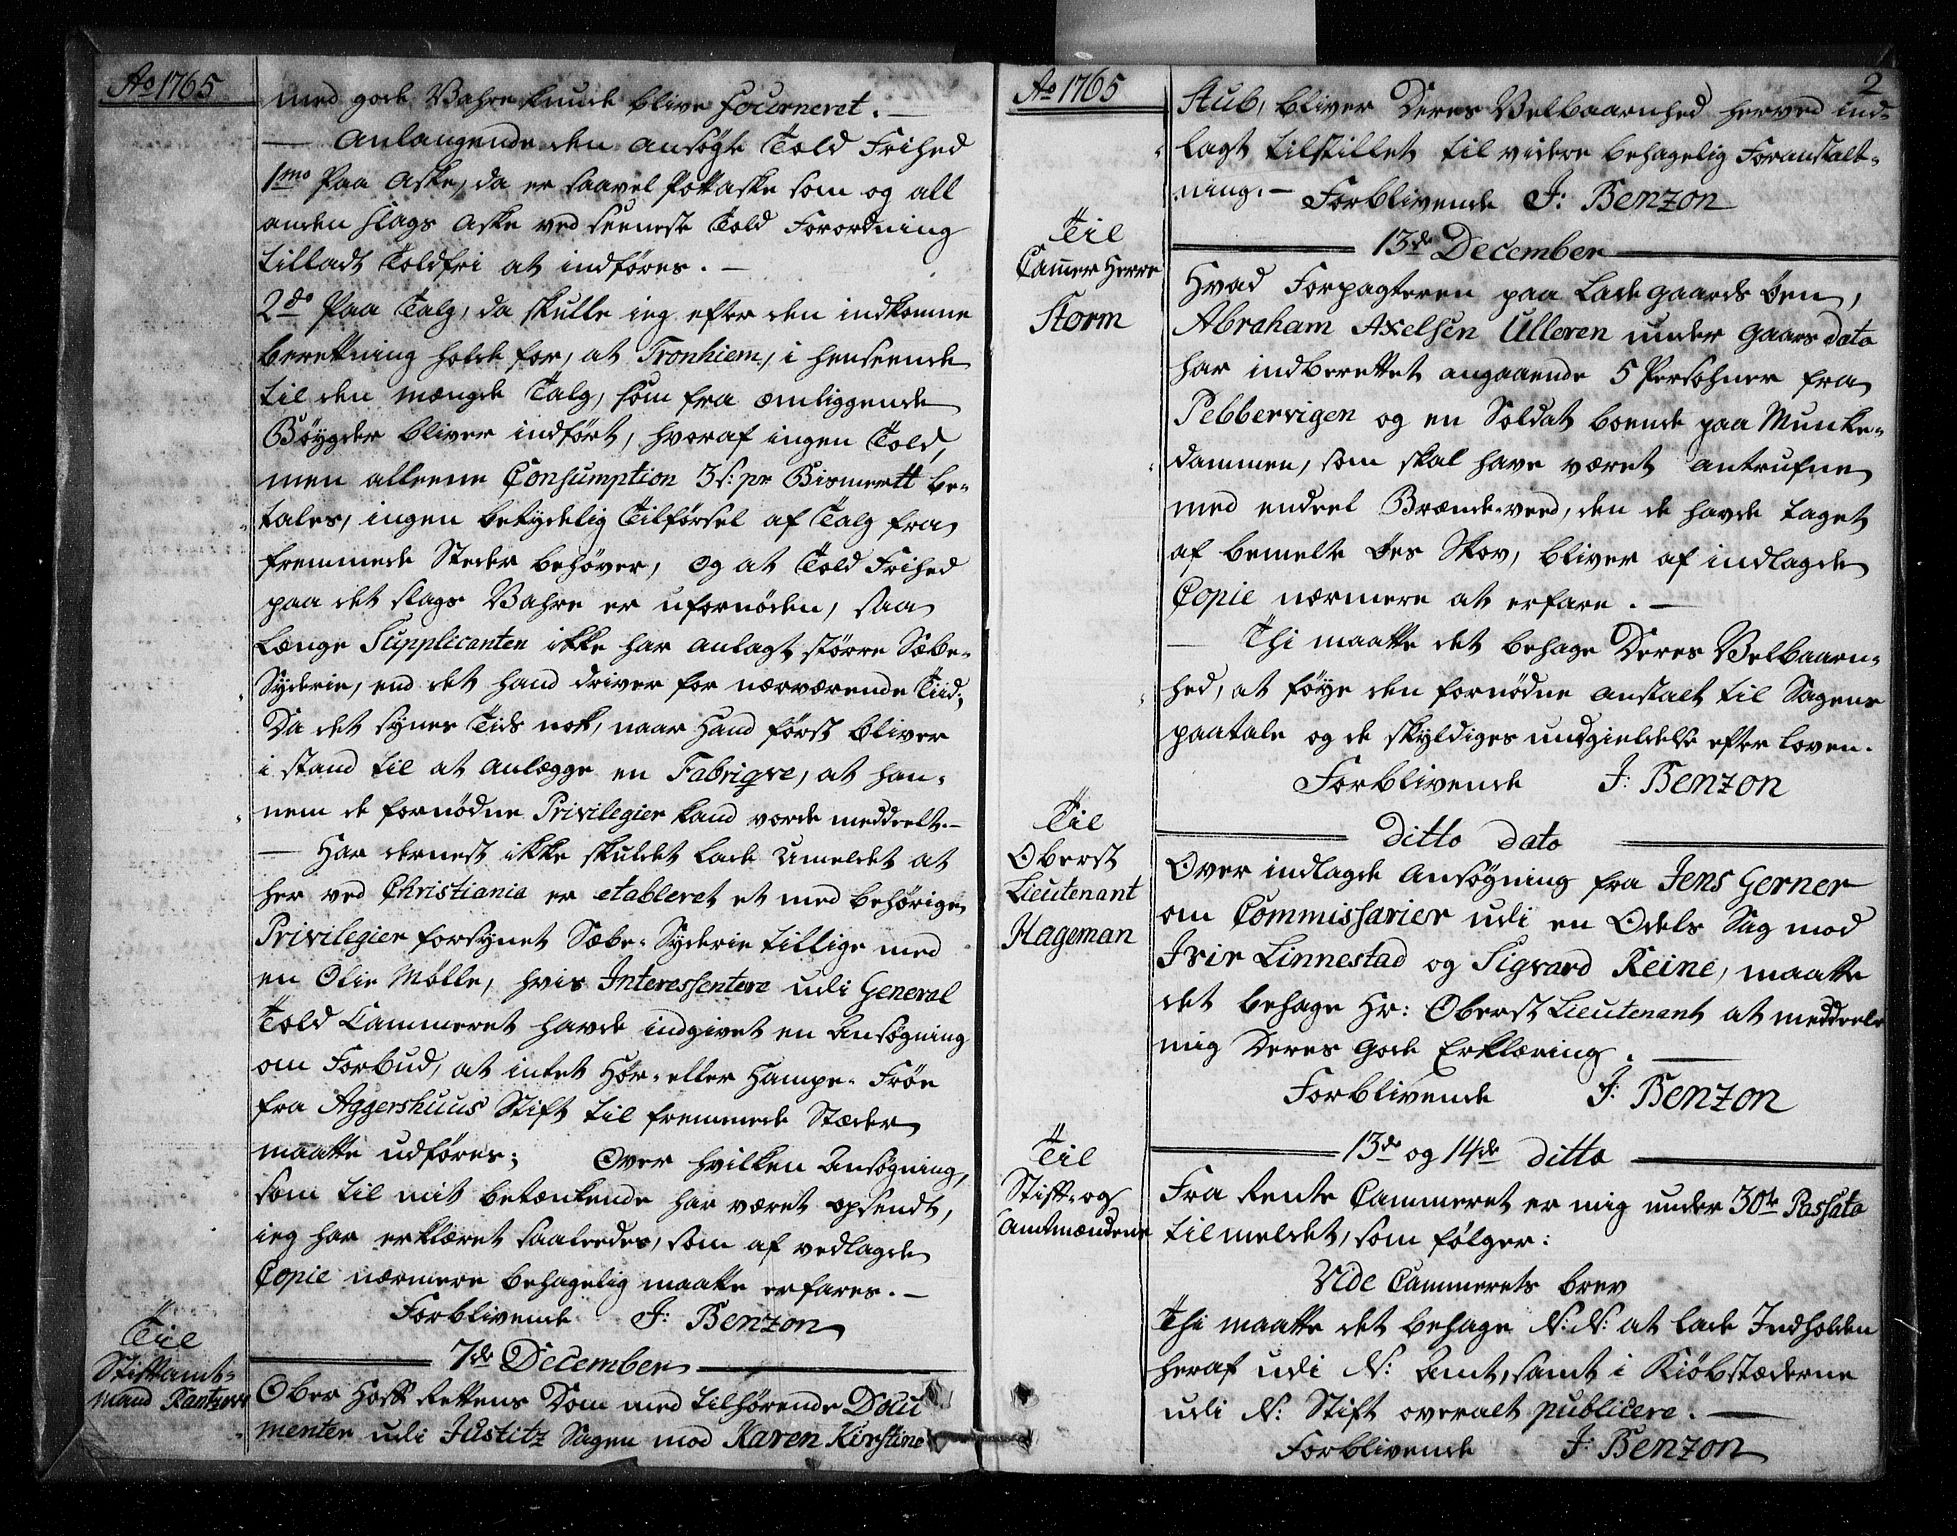 Ao 1765
med gode Vahre kunde blive fourneret. —
— Anlangende den ansøgte Told Frihed
1mo Paa Aske, da er saavel Pottaske som og all
anden slags Aske ved seeneste Told Forordning
tilladt Toldfri at indføres. —
2do Paa Talg, da skulle ieg efter den indkomne
beretning holde for, at Tronhiem, i henseende
til den mængde Talg, som fra omliggende
Bøygder bliver indført, hvoraf ingen Told,
men alleene Consumption 3 s: pr Bismertt be-
tales, ingen betydelig Tilførsel af Talg fra
fremmede Steder behøver, og at Told Frihed
paa det slags Vahre er ufornøden, saa
længe Supplicanten ikke har anlagt større Sæbe-
Syderie, end det hand driver for nærværende Tiid;
Da det synes Tids nok, naar Hand først bliver
i stand til at anlægge en Fabriqve, at han-
nem de fornødne Privilegier kand vorde meddeelt. —
— Har dernest ikke skuldet lade Umeldet at
her ved Christiania er etableret et med behørige
Privilegier forsynet Sæbe-Syderie tillige med
en Olie Mølle, hvis Interessentere udi General
Told Cammeret havde indgivet en Ansøgning
om Forbud, at intet Hør- eller Hampe-Frøe
fra Aggershuus Stift til fremmede Stæder
maatte udføres; Over hvilken Ansøgning,
som til mit betænkende har været opsendt,
ieg har erklæret saaleedes, som af vedlagde
Copie nærmere behagelig maatte erfares. —
Forblivende J: Benzon
7de December
Til
Stiftamt-
mand Rantzow
Ober Hoff Rettens Dom med tilhørende Docu
menter udi Justitz Sagen mod Karen Kirstine
Ao 1765
2
Stub, bliver Deres Velbaarnhed herved ind-
lagt tilstillet til videre behagelig Foranstalt-
ning. — Forblivende J: Benzon
13de December
Til
Camer Herre
Storm
Hvad Forpagteren paa Ladegaards Øen,
Abraham Axelsen Ulleren under Gaars dato
har indberettet angaaende 5 Persohner fra
Pebbervigen og en Soldat boende paa Munke-
dammen, som skal have været antrufne
med endeel Brænde-veed, den de havde taget
af bemelte Øes Skov, bliver af indlagde
Copie nærmere at erfare. —
— Thi maatte det behage Deres Velbaarn-
hed, at føye den fornødne anstalt til Sagens
paatale og de skyldiges undgieldelse efter Loven.
Forblivende J: Benzon
ditto dato
Til
Oberst
Lieutenant
Hageman
Over indlagde Ansøgning fra Jens Gerner
om Commissarier udi en Odels Sag mod
Iver Linnestad og Sigvard Reine, maatte
det behage Hr: Oberst Lieutenant at meddeele
mig Deres gode Erklæring. —
Forblivende J: Benzon
13de og 14de ditto
Til
Stift- og
Amtmændene
Fra Rente Cammeret er mig under 30te Passato
tilmeldet, som følger:
Vide Cammerets brev
Thi maatte det behage N: N: at lade Indholden
heraf udi N: Amt, samt i Kiøbstæderne
udi N: Stift overalt publicere. —
Forblivende J: Benzon